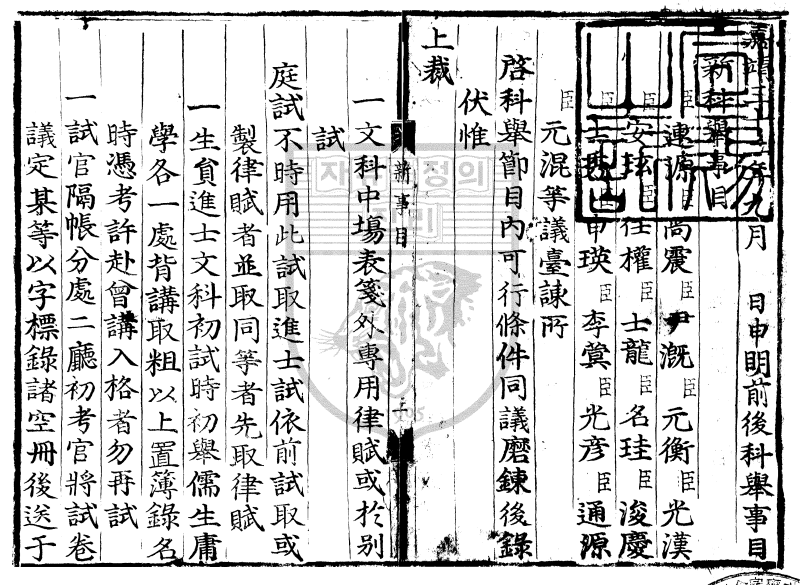 嘉靖三年九月 日申明前後科擧事目
新科擧事目
臣連源臣尙震臣尹漑臣元衡臣光漢
臣安玹臣任權臣士龍臣名珪臣浚慶
臣士臣申瑛臣李蓂臣光彦臣通源
臣元混等議臺諫所
啓科擧節目內可行條件同議磨鍊後錄
伏惟
上裁
新事目
一文科中場表箋外專用律賦或於別
試
庭試不時用此試取進士試依前試取或
製律賦者並取同等者先取律賦
一生貟進士文科初試時初擧儒生庸
學各一處背講取粗以上置簿錄名
時憑考許赴曾講入格者勿再試
一試官隔帳分處二廳初考官將試卷
議定某等以字標錄諸空冊後送于
재단법인정의